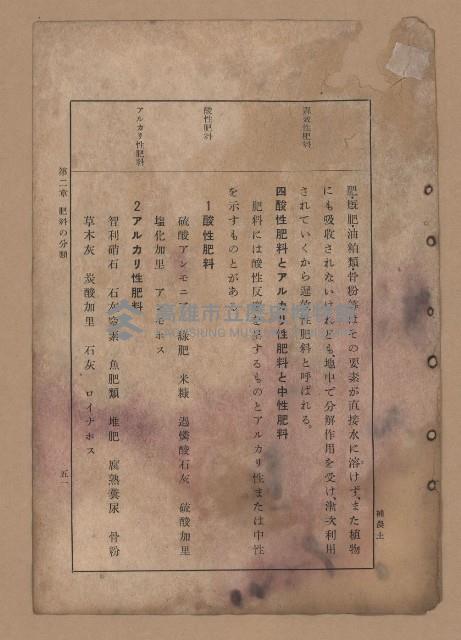 補農土
遲效性肥料
肥、廐肥、油粕類、骨粉等はその要素が直接水に溶けず、また植物
にも吸收されないけれども、地中で分解作用を受け、漸次利用
されていくから遲效性肥料と呼ばれる。
四酸性肥料とアルカリ性肥料と中性肥料
肥料には酸性反應を呈するものとアルカリ性または中性
を示すものとがあ
酸性肥料
1酸性肥料
硫酸アンモニ 綠肥 米糠 過燐酸石灰 硫酸加里
塩化加里 ア モホス
アルカリ性肥料
2アルカリ性肥料
智利硝石 石灰窒素 魚肥類 堆肥 腐熟糞尿 骨粉
草木灰 炭酸加里 石灰 ロイナホス
第二章 肥料の分類
五一
高雄市立歷史博物館
KAOHSIUNG MUSEUM